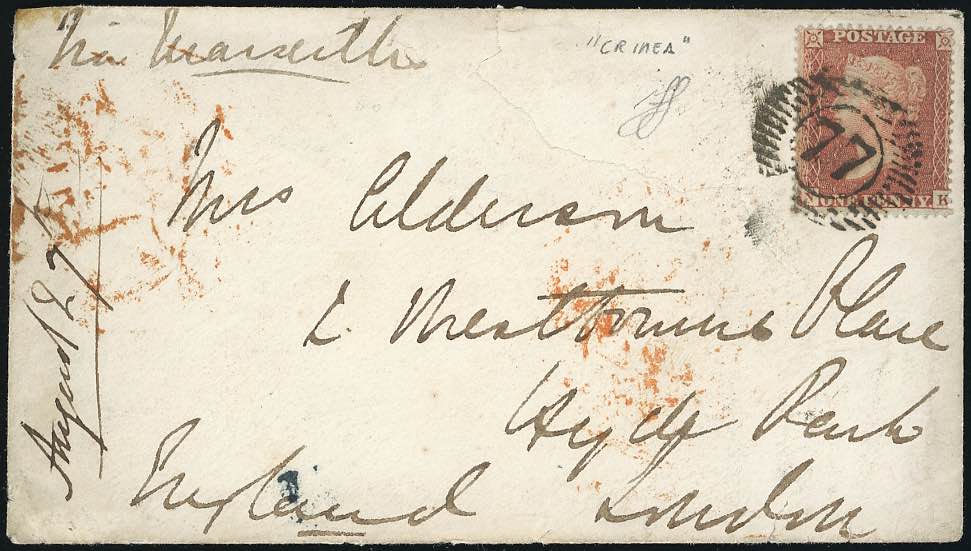 Via Marseille
"CRIMEA"
POSTAGE
77
ONE PENNY
K
Mrs Alderson
2 Westbourne Place
Hyde Park
London
England
August 27th